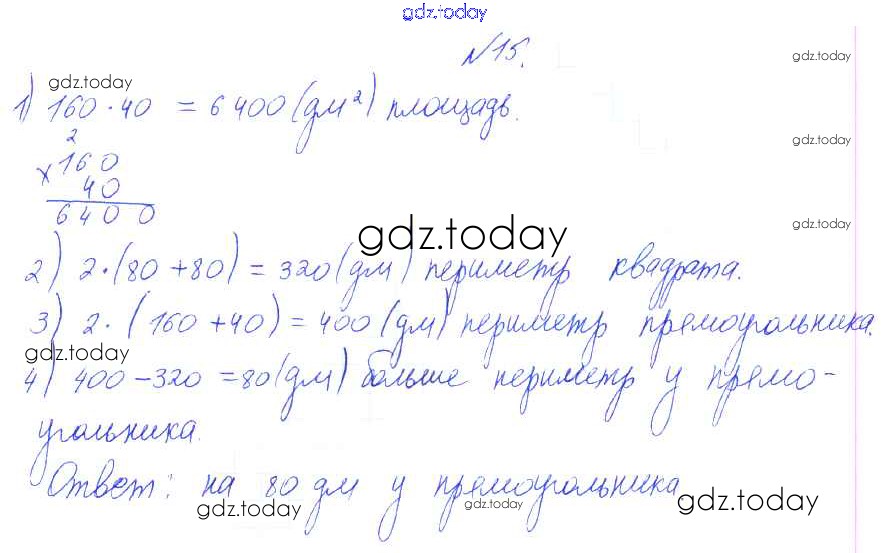 gdz.today
№15.
gdz.today
gdz.today
1) 160 · 40 = 6400 (дм²) площадь.
2
× 160
40
6400
gdz.today
gdz.today
gdz.today
2) 2 · (80 + 80) = 320 (дм) периметр квадрата.
3) 2 · (160 + 40) = 400 (дм) периметр прямоугольника.
gdz.today
4) 400 – 320 = 80 (дм) больше периметр у прямо-
угольника.
Ответ: на 80 дм у прямоугольника.
gdz.today
gdz.today
gdz.today